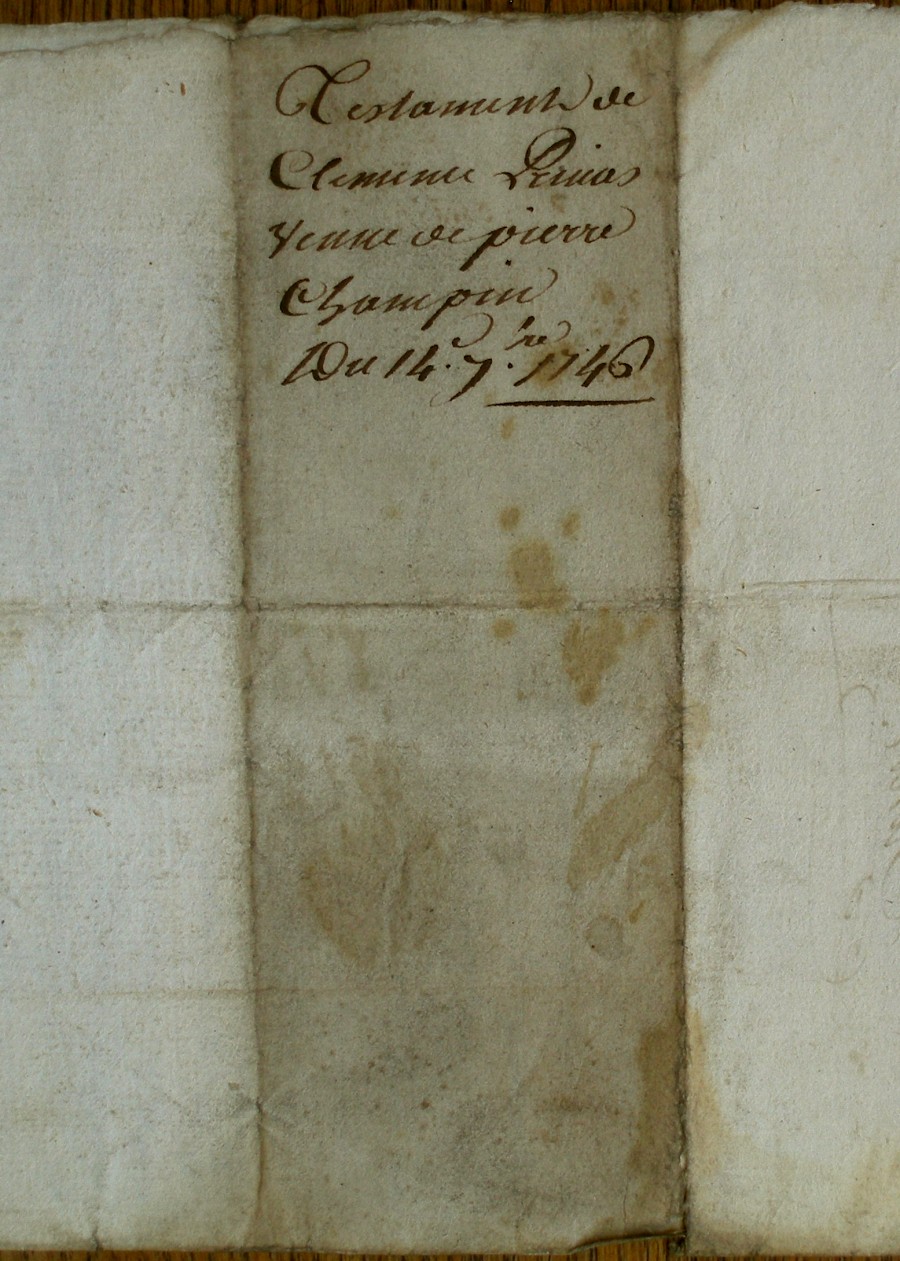 Testament de
Clemence
Veuve de pierre
Champin
Du 14e. 7.bre 1746